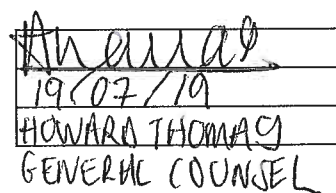 19/07/19
HOWARD THOMAS
GENERAL COUNSEL